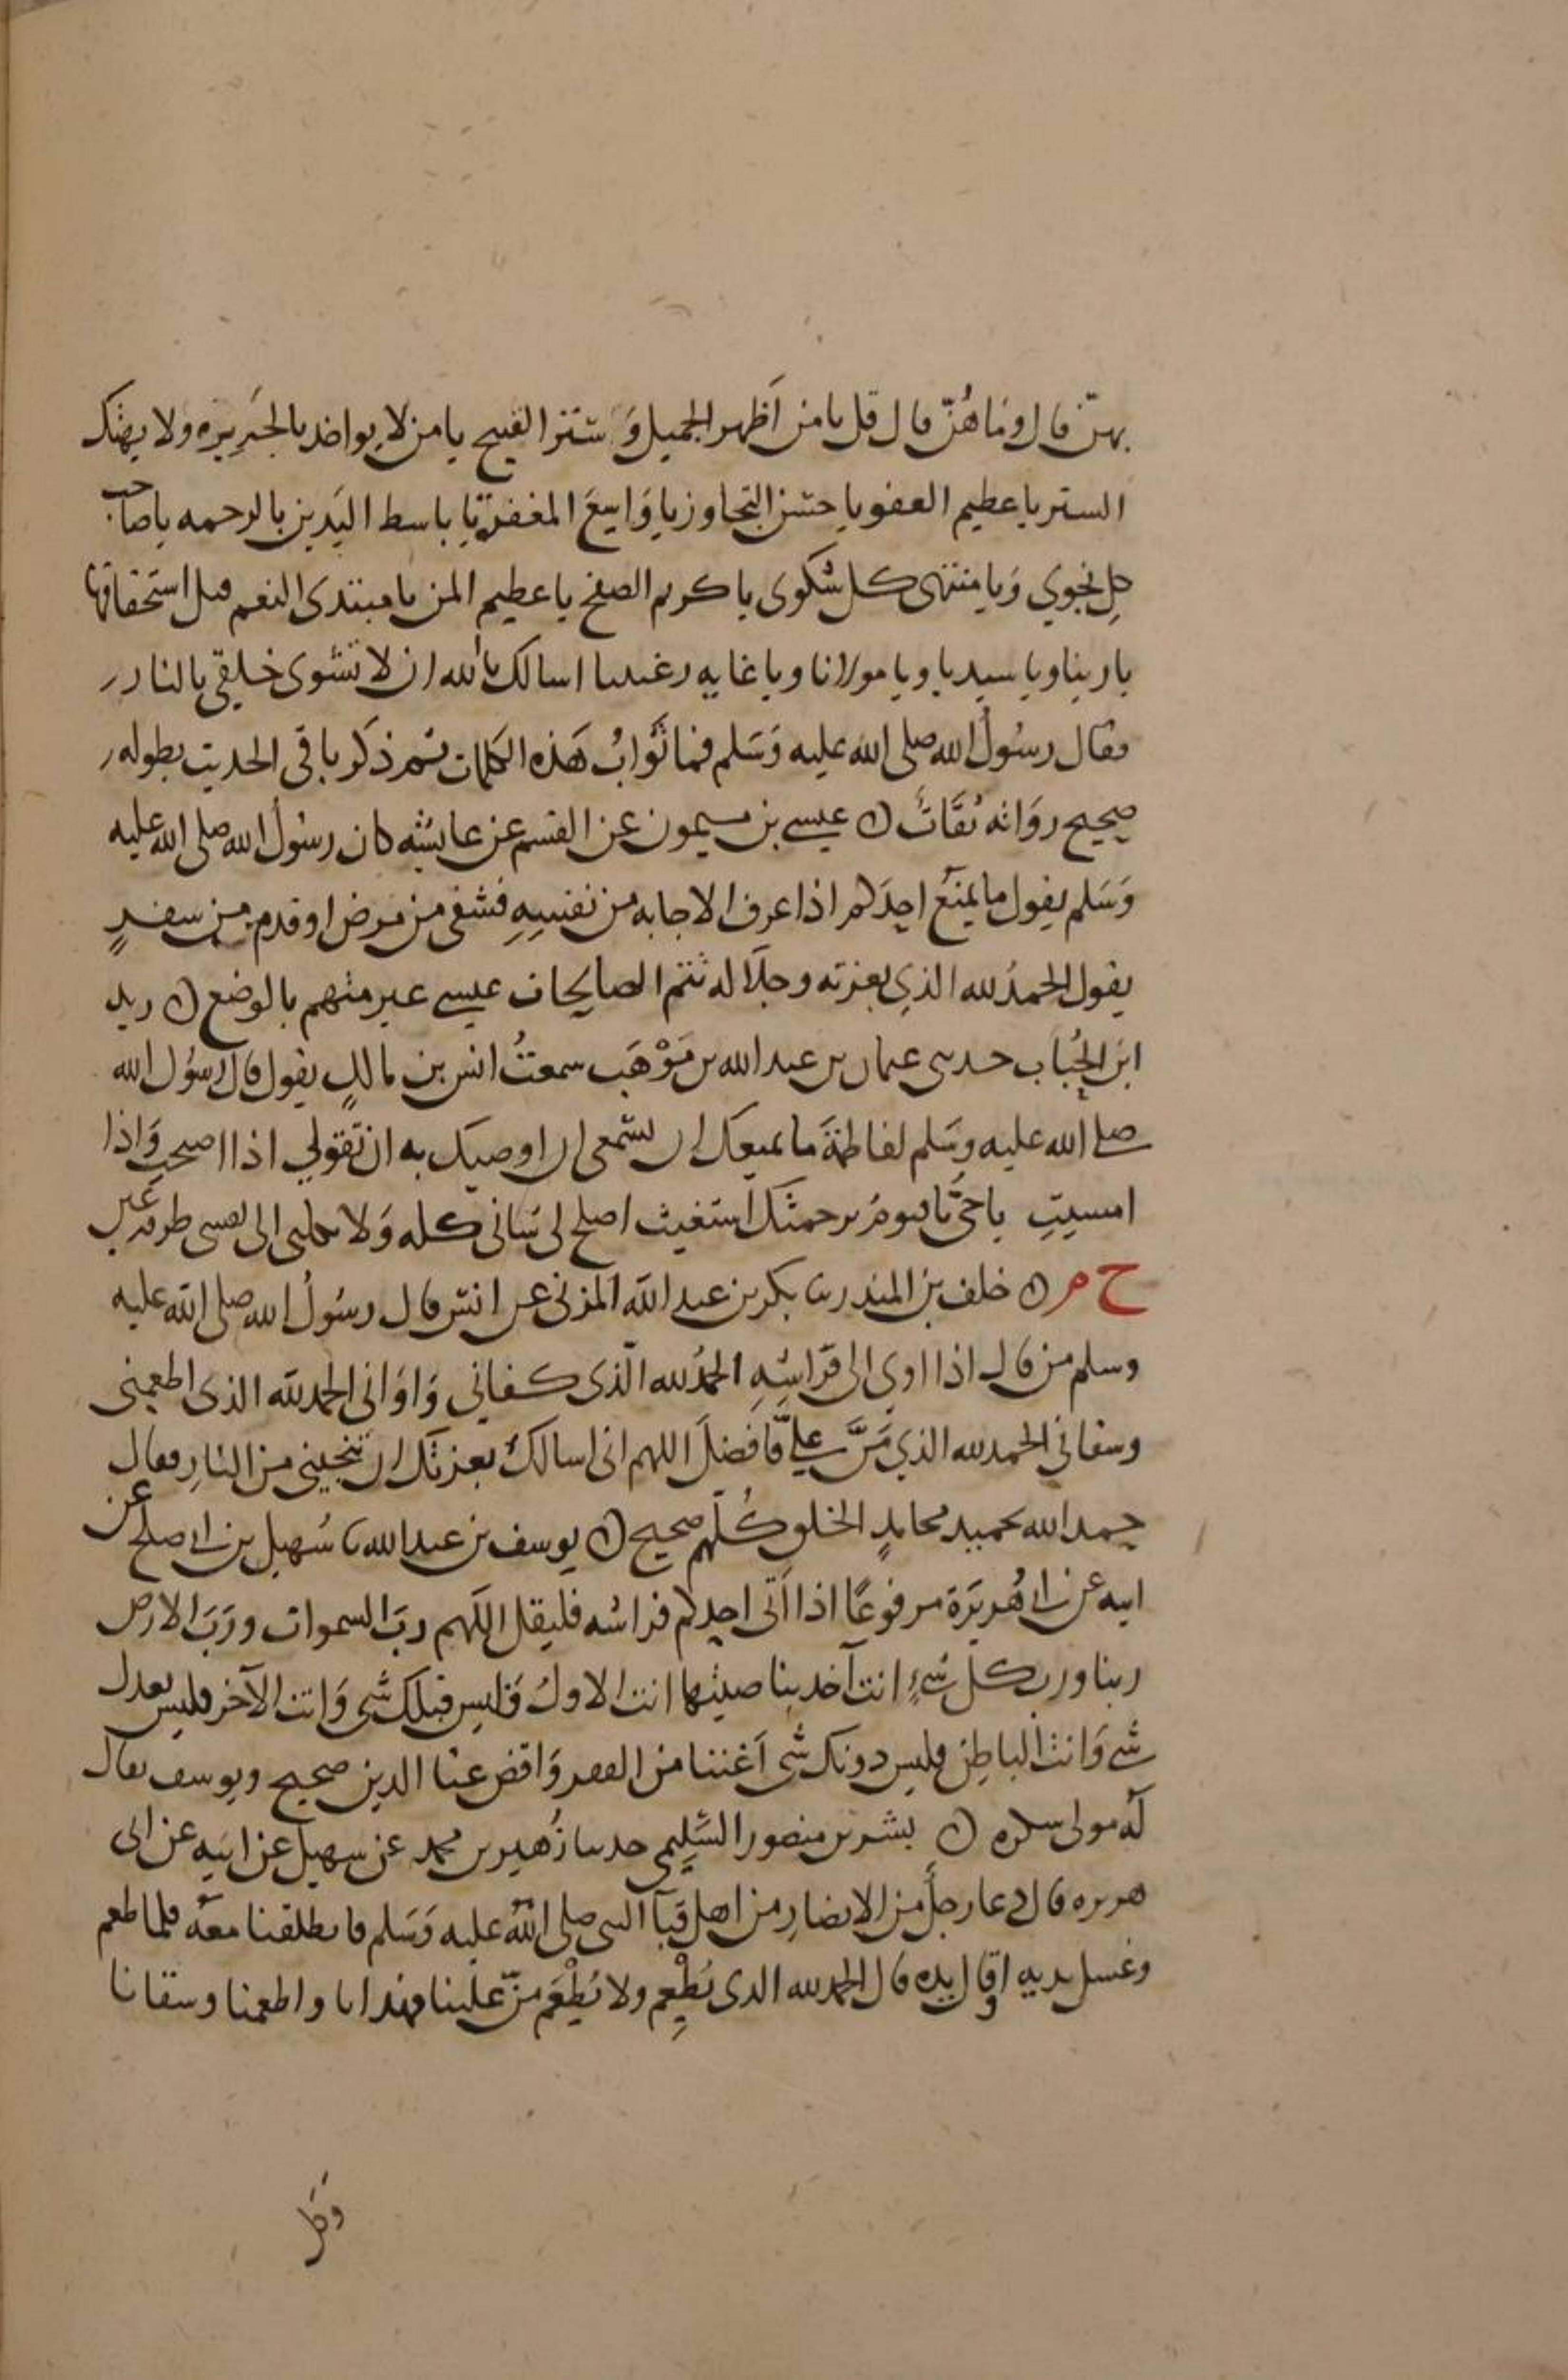 بهنّ قال وما هُنّ قال قل يا من اَظهر الجميل وَستر القبيح يا من لا يواخذ بالجَريره ولا يهتك
الستر يا عظيم العفو يا حسن التجاوز يا وَاسِعَ المغفرة يا باسط اليَدين بالرحمه يا صاحب
كل نجوي وَيا منتهى كل شكوى يا كريم الصفح يا عظيم المن يا مبتدى النعم قبل استحقاقها
يا ربنا ويا سيدنا ويا مولانا ويا غايه رغبتنا اسالك يا الله ان لا تشوى خلقي بالنار
فقال رسُولُ الله صلى الله عليه وَسَلم فما ثَوابُ هَذه الكلمات ثم ذكر باقى الحديث بطوله
صحيح روَاته ثقَاتٌ ن عيسى بن ميمون عن القسم عن عايشه كان رسُولُ الله صلى الله عليه
وَسَلم يقول ما يمنَع احدَكم اذا عرف الاجابه من نفسِهِ فشفى من مرض او قدم من سفرٍ
يقول الحمدُ لله الذِي بعزته وجلَاله تتم الصالحات عيسى غير متهم بالوضع ن زيد
ابن الحُباب حدثنى عثمان بن عبد الله بن مَوْهَب سمعتُ انس بن مالكٍ يقول قال رسُول الله
صلى الله عليه وسَلم لفاطمَةَ ما يمنعك ان تسمعى ما اوصيك به ان تقولي اذا اصبحتِ وَاذا
امسيتِ يا حيّ يا قيومُ برحمتك اَستغيث اصلح لى شانى كله وَلا تكلنى الى نفسى طرفه عين
خ م ن خلف بن المنذر نا بكر بن عبد الله المزنى عن انس قال رسُولُ الله صلى الله عليه
وسلم من قال اذا اوى الى فرَاشِهِ الحمدُ لله الّذى كفاني وَاوَانى الحمد لله الذى اطعمنى
وسقاني الحمد لله الذي مَنَّ عليَّ فاَفضلَ اللهم انى اسالك بعزتك ان تنجينى من النارِ فقال
حمد الله بحميد محامدٍ الخلق كُلّهم صحيح ن يوسف بن عبد الله نا سُهيل بن ابى صلح عن
ابيه عن ابى هُريَرَة مرفوعًا اذا اَتى احدكم فراشه فليقل اللَهم ربَّ السموات وَرَبّ الارض
ربنا ورب كل شيءٍ انت آخذ بناصيتها انت الاولُ فَليس قبلك شى وَانت الآخر فليس بعدك
شى وَانت الباطِن فليس دونك شى اَغننا من الفقر وَاقض عنا الدين صحيح ويوسف يقال
لَه مولى سكره ن بشر بن منصور السّلِيمى حدثنا زُهير بن محمد عن سهيل عن ابيه عن ابى
هريره قال دعا رجلٌ من الانصارِ من اهل قبآ النبى صلى الله عليه وَسَلم فانطلقنا معَهُ فلما طعم
وغسل يديه او قال يده قال الحمد لله الذى يُطْعِم ولا يُطْعَم منّ علينا فهدانا واطعمنا وسقانا
وكل